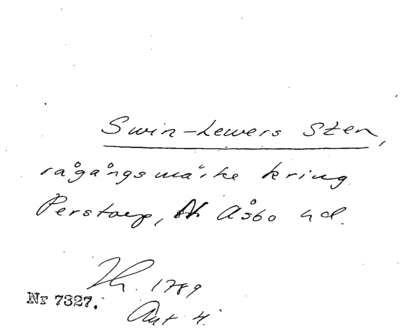 Swin-Lewers Sten,
rågångsmärke kring
Perstorp, N Åsbo hd.
Th. 1789
Nr 7327.
Ant 4.